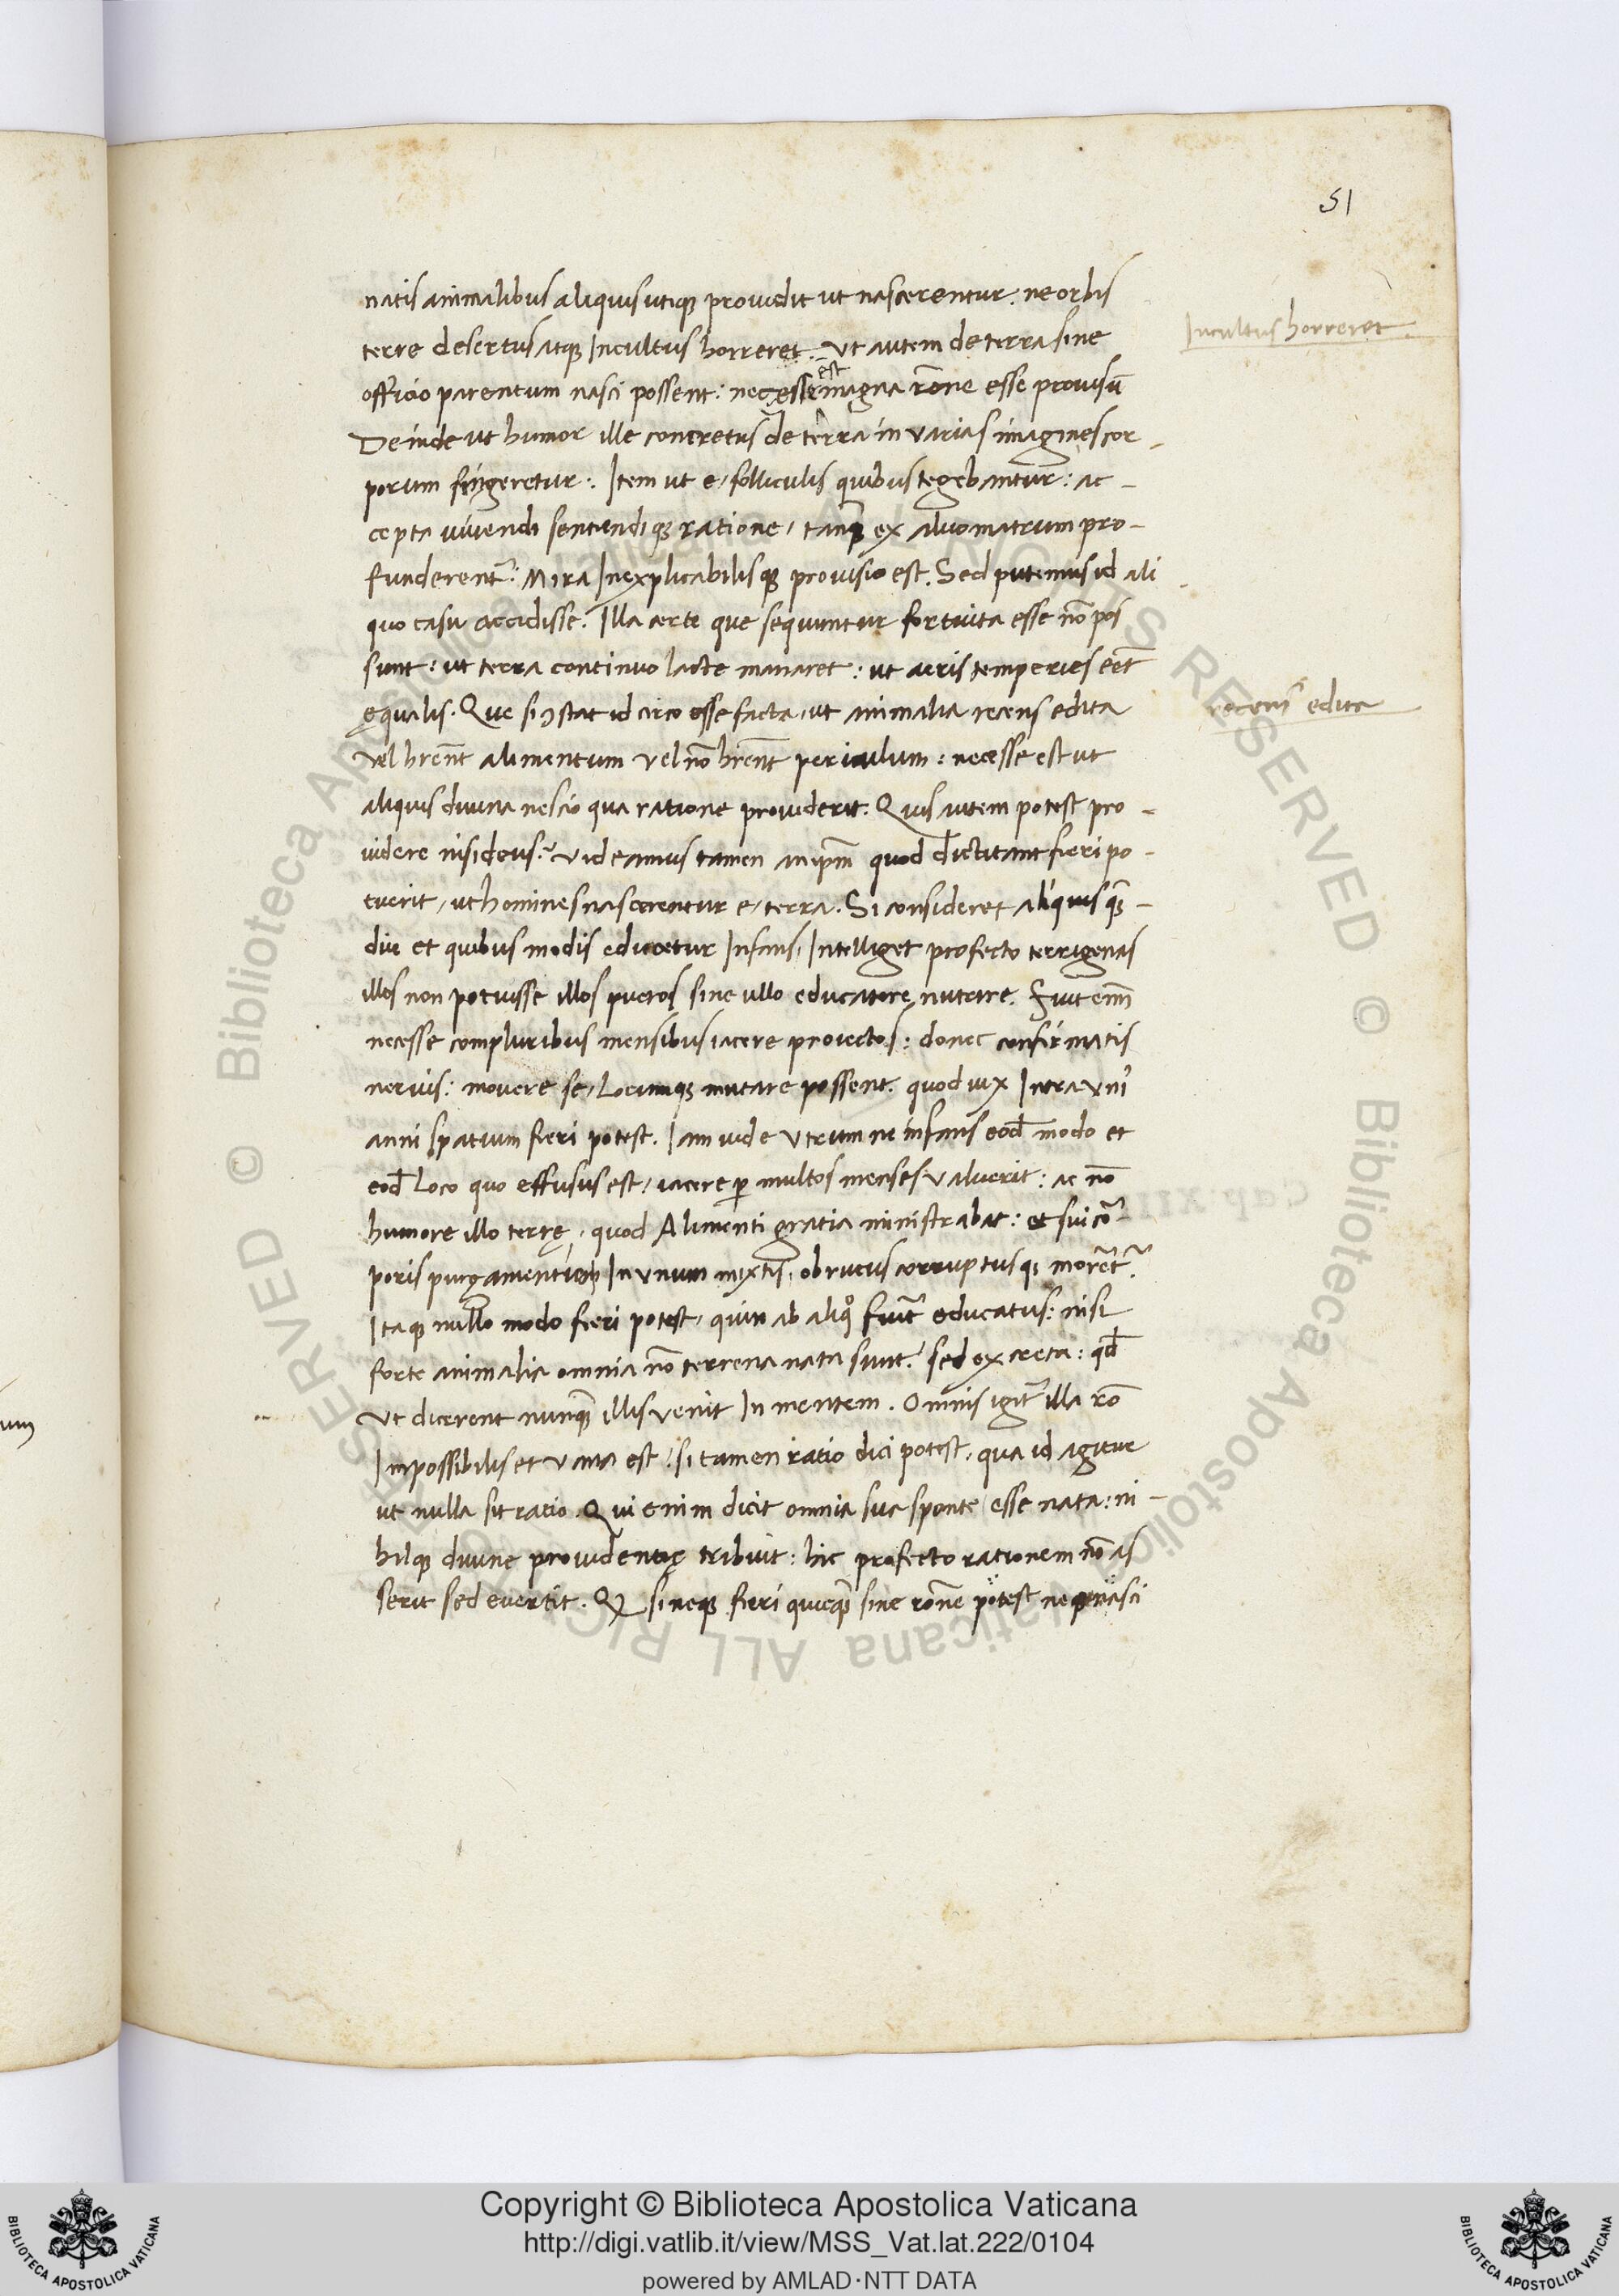 51
natis animalibus aliquis utiqꝫ prouidit ut nascerentur: ne orbis
terre desertus atqꝫ Incultus horreret. Ut autem de terra sine
Incultus horreret
officio parentum nasci possent: necesse est magna rōne esse prouisū
Deinde ut humor ille concretus de terra in varias imagines cor-
porum fingeretur: Item ut e folliculis quibus tegebantur: ac-
cepta uiuendi sentiendiqꝫ ratione, tanꝗ ex aluo matrum pro-
funderent᷑: Mira Inexplicabilisqꝫ prouisio est. Sed putemus id ali
quo casu accidisse. Illa certe que sequuntur fortuita esse nō pos
sunt: ut terra continuo lacte manaret: ut aeris temperies eēt
ęqualis. Que si ꝯstat id circo esse facta, ut animalia recens edita
recens edita
vel hrēnt alimentum vel nō hrēnt periculum: necesse est ut
aliquis diuina nescio qua ratione prouiderit. Quis autem potest pro-
uidere nisi deus? Videamus tamen an ip̄m quod dictitant fieri po-
tuerit, ut homines nascerentur e terra. Si consideret aliquis qꝫ̄-
diu et quibus modis educetur Infans, Intelliget profecto terrigenas
illos non potuisse illos pueros sine ullo educatore nutrire. Fuit enī
necesse compluribus mensibus iacere proiectos: donec confirmatis
neruis: mouere se, Locumqꝫ mutare possent. quod uix Intra vnī
anni spatium fieri potest. Iam uide Utrumne infans eod̄ modo et
eod̄ Loco quo effusus est, iacere ꝑ multos menses valuerit: ac nō
humore illo terrę, quod Alimenti gratia ministrabat: et sui cor-
poris purgamentis In vnum mixtis, obrutus corruptusqꝫ morēt᷑?
Itaqꝫ nullo modo fieri potest, quin ab aliqͦ fuit᷑ educatus: nisi
forte animalia omnia nō terrena nata sunt? sed ex creta: qd̄
Ut dicerent nunꝗ̄ illis venit In mentem. Omnis igit᷑ illa rō
Impossibilis et vana est, si tamen ratio dici potest, qua id agitur
ut nulla sit ratio. Qui enim dicit omnia sua sponte esse nata: ni-
hilqꝫ diuine prouidentię tribuit: hic profecto rationem nō as
serit sed euertit. Qꝫ si neqꝫ fieri quicꝗ̄ sine rōne potest neqꝫ nasci
Copyright © Biblioteca Apostolica Vaticana
http://digi.vatlib.it/view/MSS_Vat.lat.222/0104
powered by AMLAD·NTT DATA